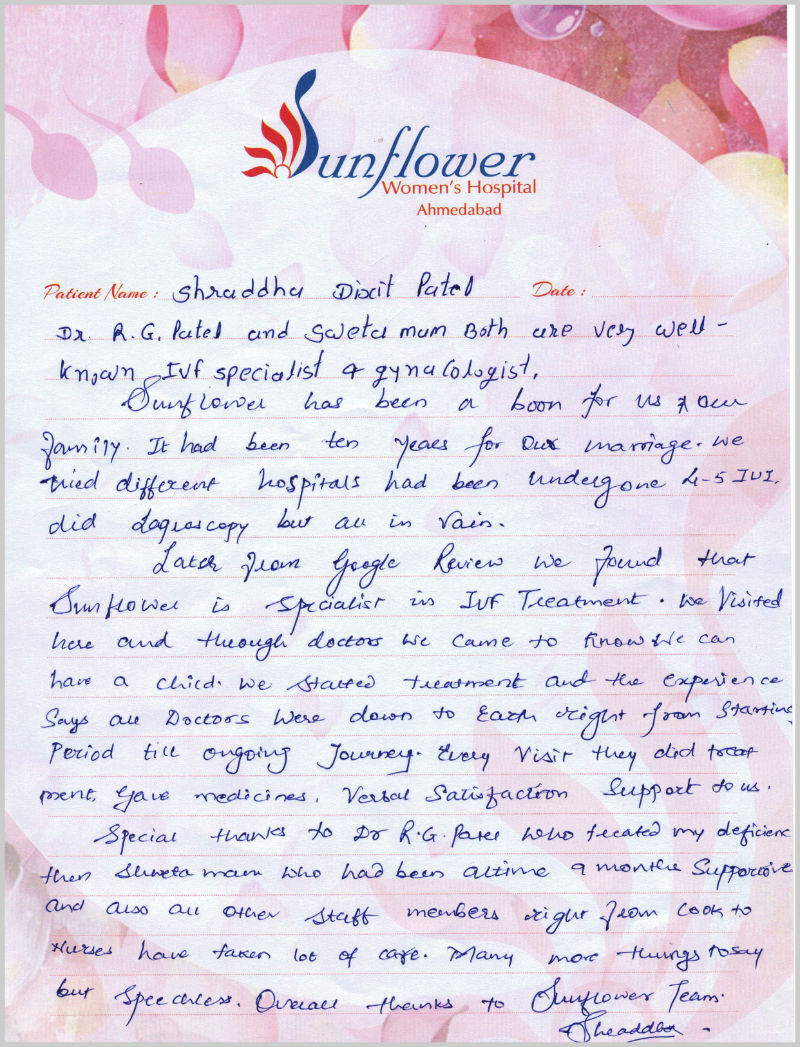 Sunflower
Women's Hospital
Ahmedabad
Patient Name : Shraddha Dixit Patel Date :
Dr. R.G. Patel and Sweta mam Both are very well-
known IVF specialist & gynacologist.
Sunflower has been a boon for us & our
family. It had been ten years for our marriage. we
tried different hospitals had been undergone 4-5 IUI,
did Lagroscopy but all in vain.
Later from Google Review we found that
Sunflower is specialist in IVF Treatment. we visited
here and through doctors we came to know we can
have a child. we started treatment and the experience
says all Doctors were down to Earth right from starting
Period till ongoing Journey. Every visit they did treat
ment, gave medicines, Verbal Satisfaction Support to us.
Special thanks to Dr R.G. Patel who treated my deficienc
then Shweta mam who had been altime 9 months Supportive
and also all other staff members right from cook to
Nurses have taken lot of care. Many more things to say
but Speechless. Overall thanks to Sunflower Team.
Shraddha